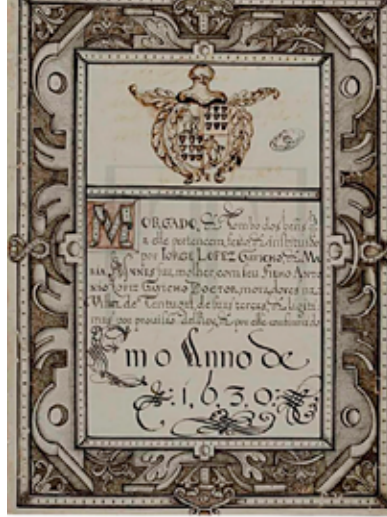 MORGADO, & Tombo dos beñs q̃
a elle pertencem, feito & instituido
por IORGE LOPEZ GAVICHO & MA
RIA ANNES sua molher, com seu filho Anto
nio Lopez Gavicho DOCTOR, moradores na
Villa de Tentugal, de suas terças, & ligiti
mas por prouisão del Rey, & por elle confirmado
mo Anno de
1630